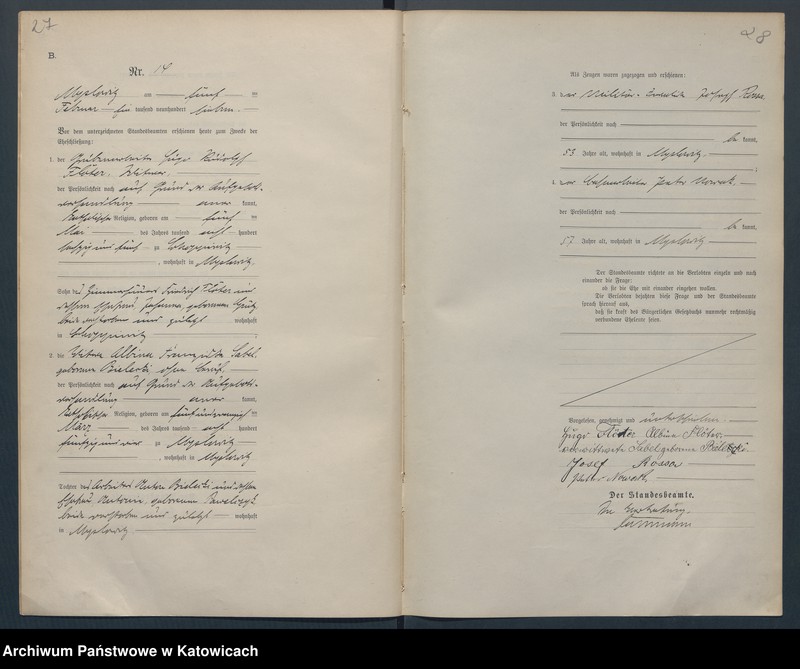 27
B.
Nr. 14
Myslowitz am fünf ten
Februar ein tausend neunhundert sieben.
Vor dem unterzeichneten Standesbeamten erschienen heute zum Zwecke der
Eheschließung:
1. der Grubenarbeiter Hugo Rudolf
Flöter, Witwer
der Persönlichkeit nach auf Grund der Aufgebots-
verhandlung aner kannt,
katholischer Religion, geboren am fünf ten
Mai des Jahres tausend acht hundert
sechzig und fünf zu Schoppinitz
, wohnhaft in Myslowitz,
Sohn des Friedrich Flöter und
dessen Ehefrau Johanna geborenen
beide verstorben und zuletzt wohnhaft
in Schoppinitz ;
2. die Witwe Albina Franziska Sobel,
geborene Bielecki ohne Beruf,
der Persönlichkeit nach auf Grund der Aufgebots-
verhandlung aner kannt,
katholischer Religion, geboren am fünfundzwanzig ten
März des Jahres tausend acht hundert
fünfzig und vier zu Myslowitz
, wohnhaft in Myslowitz
Tochter des Arbeiters Anton Bielecki und dessen
Ehefrau Antonie, geborenen
beide verstorben und zuletzt wohnhaft
in Myslowitz
28
Als Zeugen waren zugezogen und erschienen:
3. der Militär-Invalide Joseph Rossa
der Persönlichkeit nach
be kannt,
53 Jahre alt, wohnhaft in Myslowitz ;
4. der Bahnarbeiter Peter Nowak
der Persönlichkeit nach
be kannt,
57 Jahre alt, wohnhaft in Myslowitz
Der Standesbeamte richtete an die Verlobten einzeln und nach
einander die Frage:
ob sie die Ehe mit einander eingehen wollen.
Die Verlobten bejahten diese Frage und der Standesbeamte
sprach hierauf aus,
daß sie kraft des Bürgerlichen Gesetzbuchs nunmehr rechtmäßig
verbundene Eheleute seien.
Vorgelesen, genehmigt und unterschrieben.
Hugo Flöter Albina Flöter
verwittwete Sobel geborene Bielecki
Josef Rossa
Peter Nowak
Der Standesbeamte.
In Vertretung.
Archiwum Państwowe w Katowicach